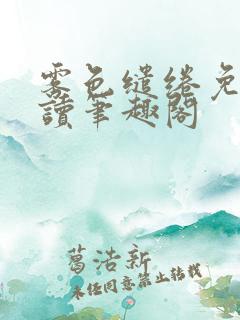 雾色缱绻免
讀筆趣閣
葛浩新
未经同意禁止转载